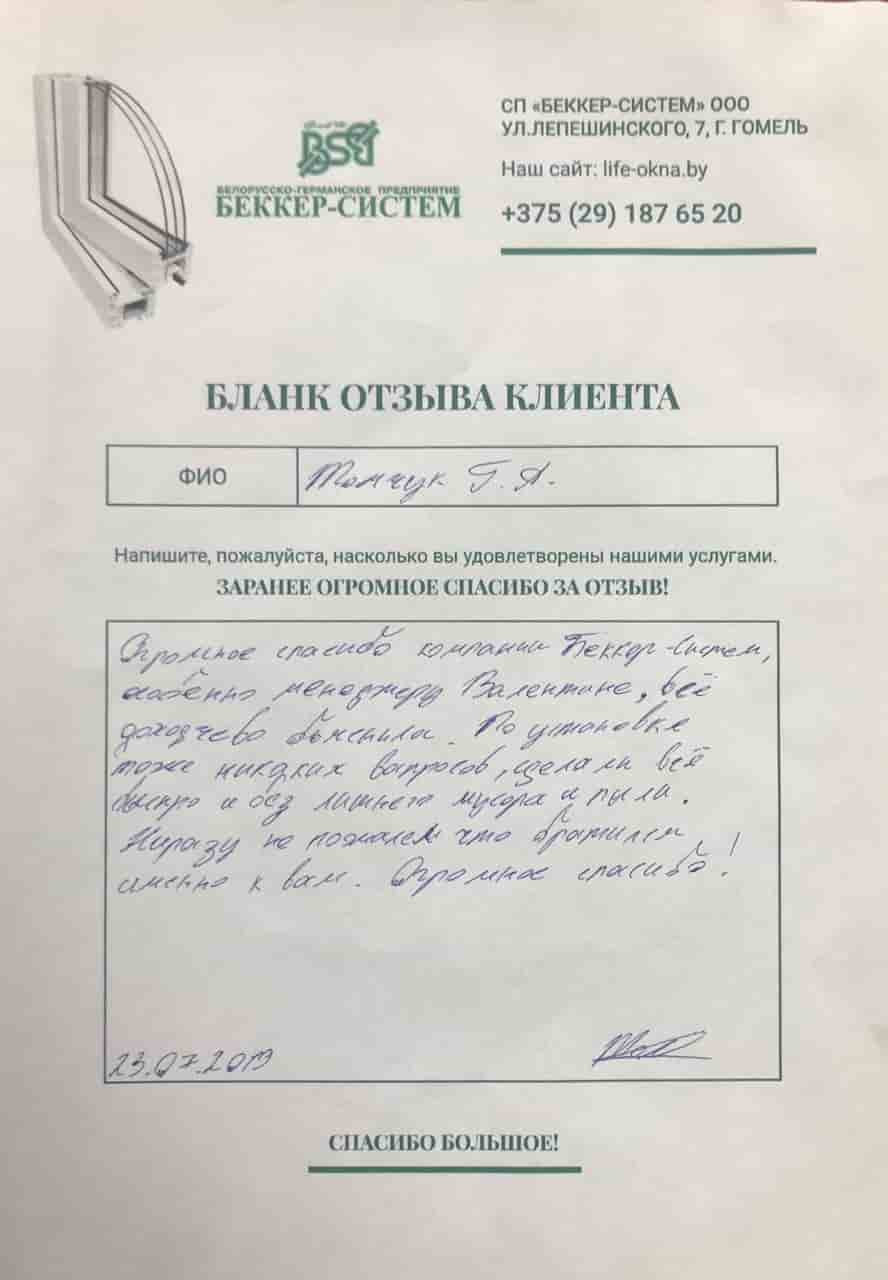 BSB
БЕЛОРУССКО-ГЕРМАНСКОЕ ПРЕДПРИЯТИЕ
БЕККЕР-СИСТЕМ
СП «БЕККЕР-СИСТЕМ» ООО
УЛ.ЛЕПЕШИНСКОГО, 7, Г. ГОМЕЛЬ
Наш сайт: life-okna.by
+375 (29) 187 65 20
БЛАНК ОТЗЫВА КЛИЕНТА
ФИО Томчук Г. А.
Напишите, пожалуйста, насколько вы удовлетворены нашими услугами.
ЗАРАНЕЕ ОГРОМНОЕ СПАСИБО ЗА ОТЗЫВ!
Огромное спасибо компании Беккер-Систем,
особенно менеджеру Валентине, всё
доходчево обьяснила. По установке
тоже никаких вапросов, сделали всё
быстро и без лишнего мусора и пыли.
Ниразу не пожалел что братился
именно к вам. Огромное спасибо!
23.07.2019
СПАСИБО БОЛЬШОЕ!